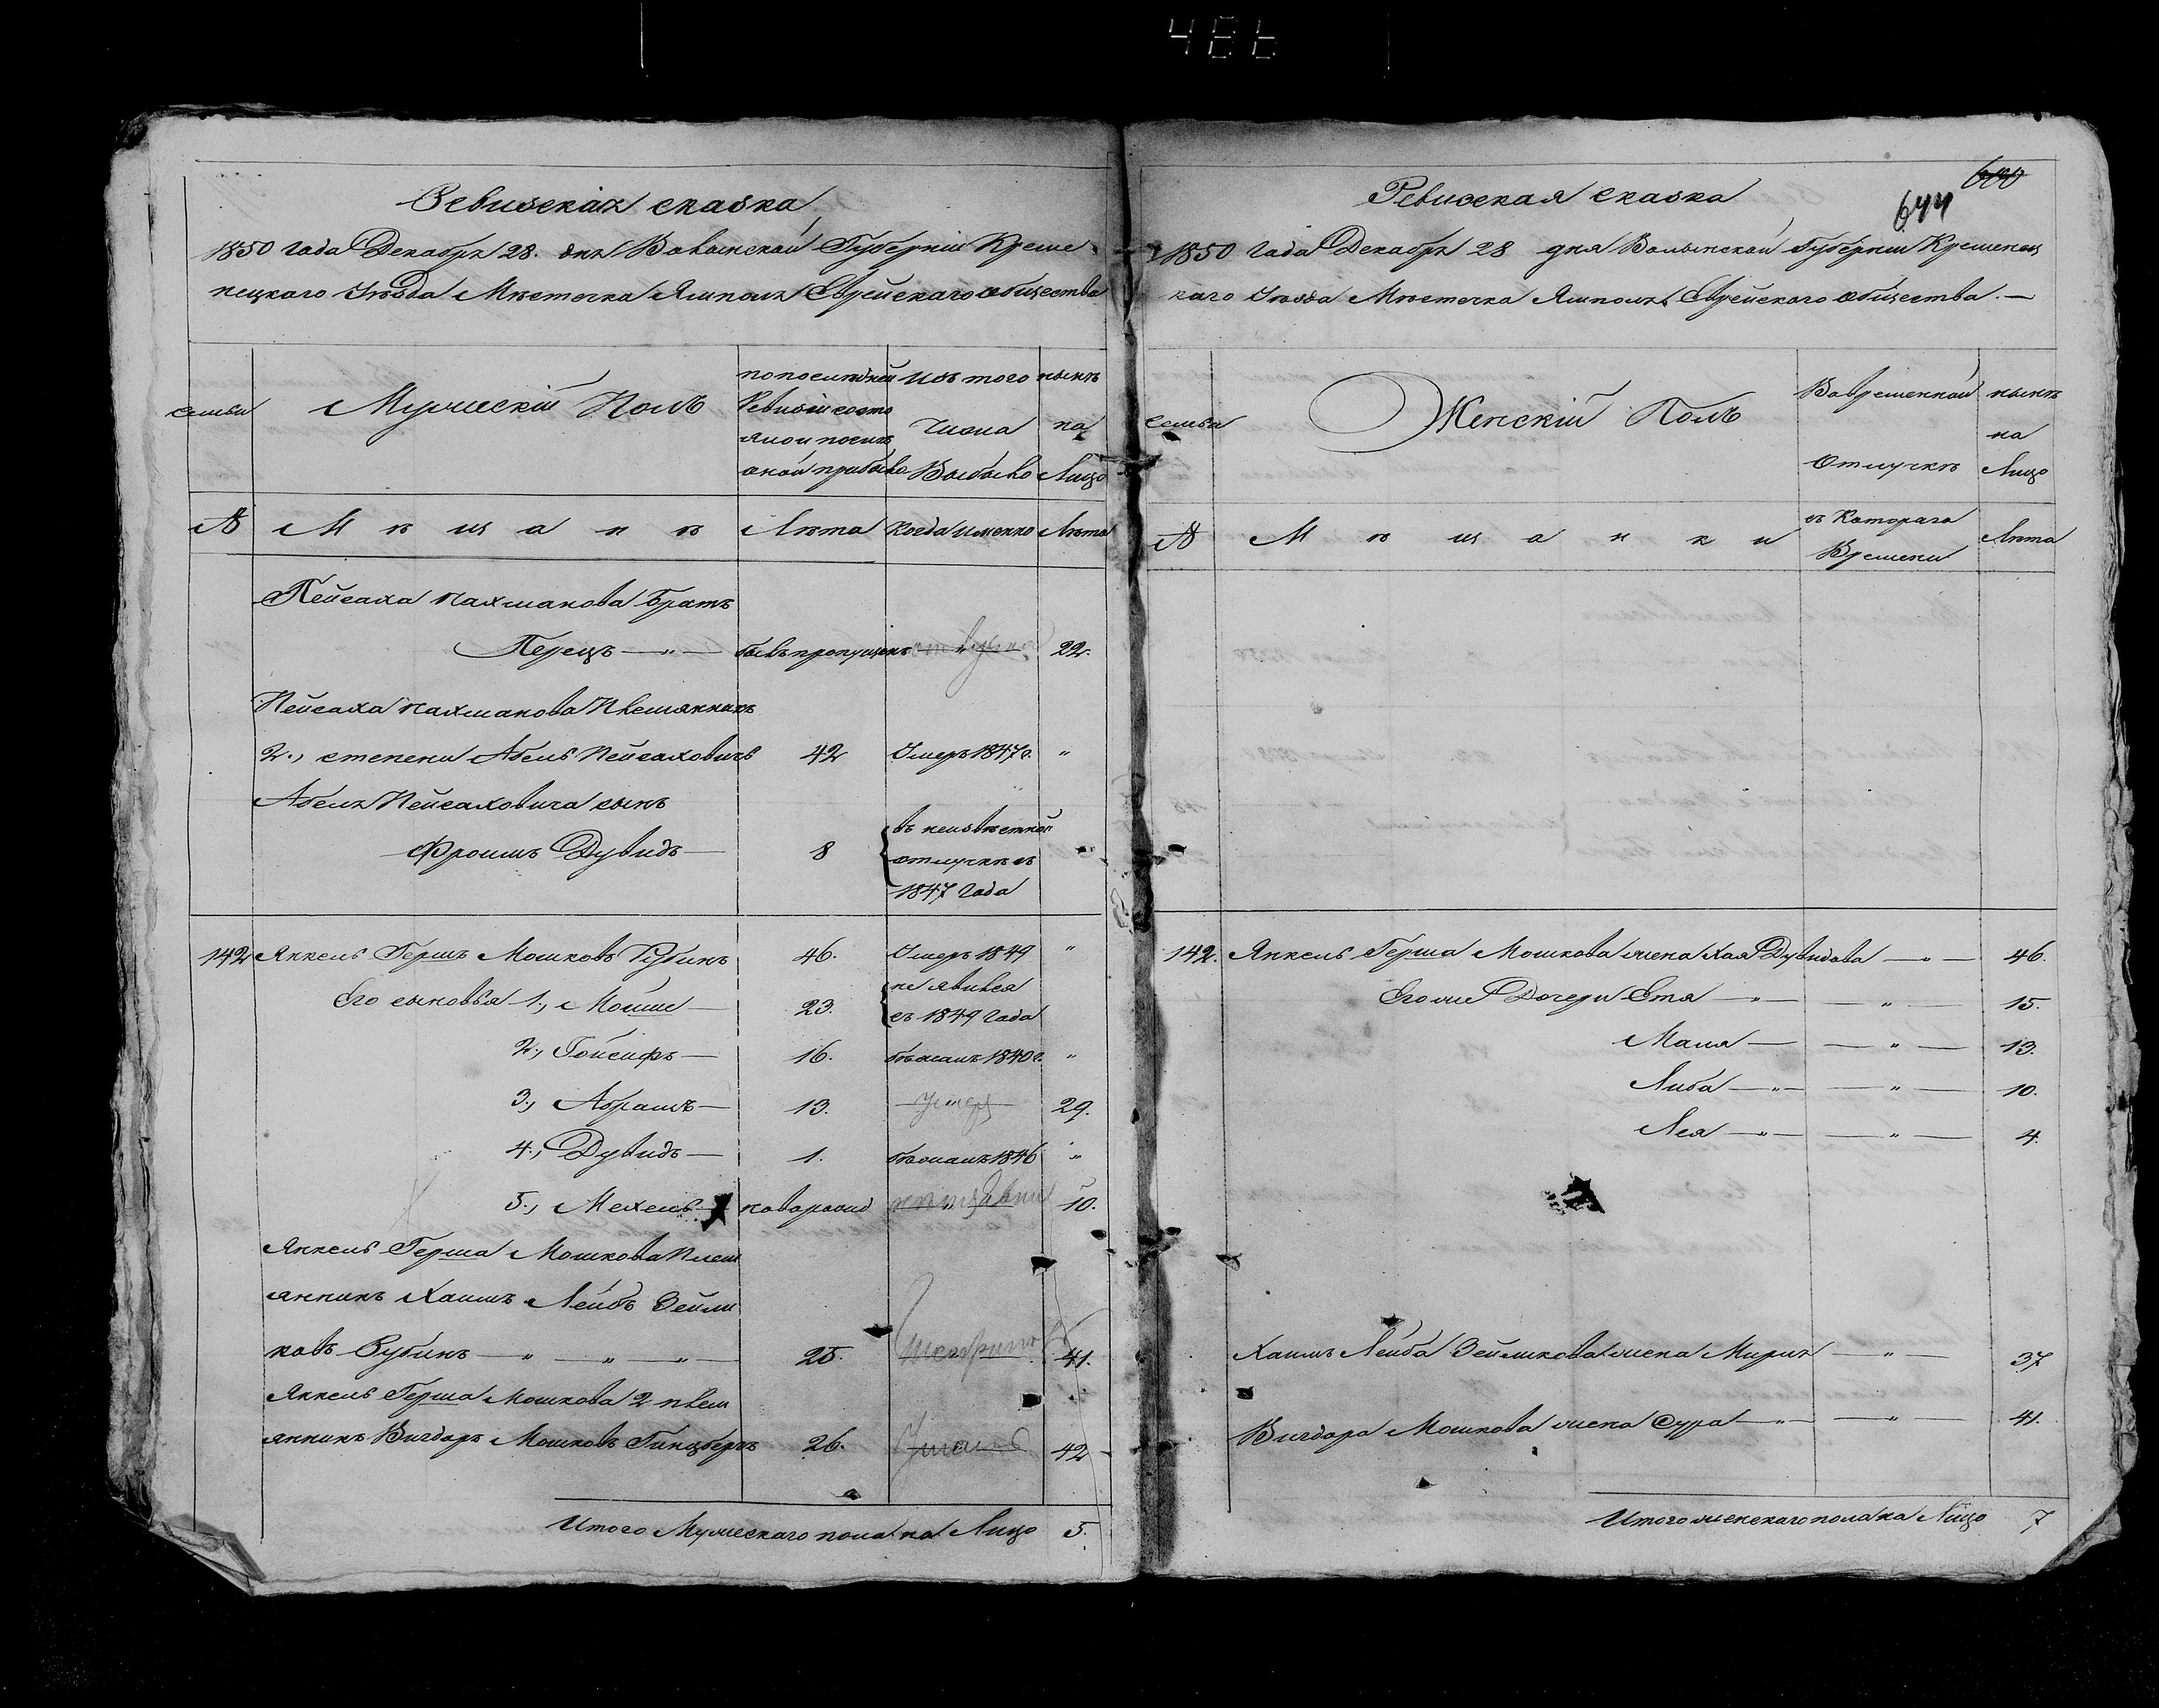 486
Ревизская сказка
1850 года Декабря 28. дня Волынской Губерніи Креме
нецкаго Уѣзда Мѣстечка Ямполя Еврейскаго общества
семьи
Мужескій Полъ
по последней
Ревизіи состо
яло и после
оной прибыло
Изъ того
Числа
Выбыло
нынѣ
на
Лицо
№
Мѣщанѣ
Лѣта
Когда именно
Лѣта
Пейсаха Нахманова Братъ
Перецъ — " — былъ пропущенъ 22.
Пейсаха Нахманова Племянникъ
2., степени Абель Пейсаховичъ 42 Умеръ 1847 г. "
Абеля Пейсаховича сынъ
Фроимъ Дувидъ — 8
въ неизвѣстной
отлучкѣ съ
1847 года
"
142 Янкель Гершъ Мошковъ Рубинъ 46. Умеръ 1849 "
Его сыновья 1., Мошше — 23.
не явился
съ 1849 года
2., Іойсифъ — 16. бѣжалъ 1840 г. "
3., Абрамъ — 13. умер 29.
4., Дувидъ — 1. бѣжалъ 1846 "
5., Мехель новорожд 10.
Янкель Герша Мошкова Плем
янникъ Хаимъ Лейбъ Зейли
ковъ Рубинъ — " — " — " — 25. 41.
Янкель Герша Мошкова 2 плем
янникъ Вигдоръ Мошковъ Гинцбергъ 26. 42
Итого Мужескаго пола на Лицо 5.
600
644
Ревизская сказка
1850 года Декабря 28 дня Волынской Губерніи Кременец
каго Уѣзда Мѣстечка Ямполя Еврейскаго общества. —
Семьи
Женскій Полъ
Во временной
Отлучкѣ
нынѣ
на
Лицо
№
Мѣщанки
съ Котораго
Времени
Лѣта
142. Янкель Герша Мошкова жена Хая Дувидова — " — 46.
Его же Дочери Етя — " — — " — 15.
Маля — — " — 13.
Либа — " — — " — 10.
Лея — " — — " — 4.
Хаимъ Лейба Зейликова жена Мирія — " — 37
Вигдора Мошкова жена Сура — " — — " — 41.
Итого женскаго пола на Лицо 7